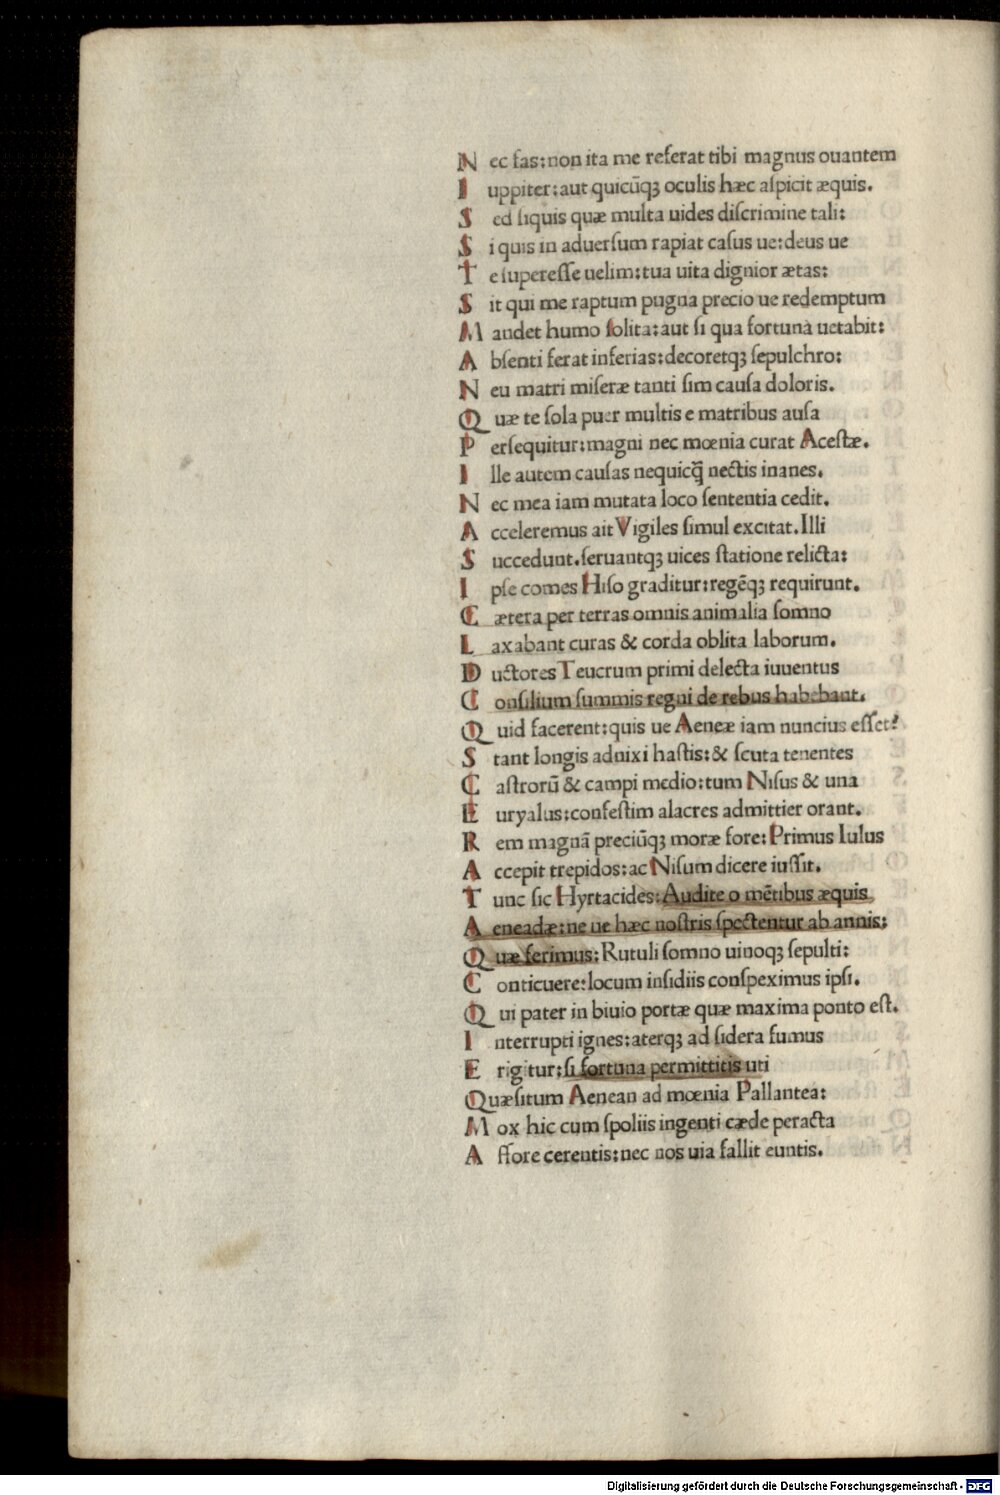 N ec fas:non ita me referat tibi magnus ouantem
I uppiter:aut quicūqꝫ oculis hæc aſpicit æquis.
S ed ſiquis quæ multa uides diſcrimine tali:
S i quis in aduerſum rapiat caſus ue:deus ue
T e ſupereſſe uelim:tua uita dignior ætas:
S it qui me raptum pugna precio ue redemptum
M andet humo ſolita:aut ſi qua fortuna uetabit:
A bſenti ferat inferias:decoretqꝫ ſepulchro:
N eu matri miſeræ tanti ſim cauſa doloris.
Q uæ te ſola puer multis e matribus auſa
P erſequitur:magni nec mœnia curat Aceſtæ.
I lle autem cauſas nequicq̄ nectis inanes.
N ec mea iam mutata loco ſententia cedit.
A cceleremus ait Vigiles ſimul excitat.Illi
S uccedunt.ſeruantqꝫ uices ſtatione relicta:
I pſe comes Hiſo graditur:regēqꝫ requirunt.
C ætera per terras omnis animalia ſomno
L axabant curas & corda oblita laborum.
D uctores Teucrum primi delecta iuuentus
C onſilium ſummis regni de rebus habebant.
Q uid facerent:quis ue Aeneæ iam nuncius eſſet?
S tant longis adnixi haſtis:& ſcuta tenentes
C aſtrorū & campi medio:tum Niſus & una
E uryalus:confeſtim alacres admittier orant.
R em magnā preciūqꝫ moræ fore:Primus Iulus
A ccepit trepidos:ac Niſum dicere iuſſit.
T unc ſic Hyrtacides:Audite o mētibus æquis
A eneadæ:ne ue hæc noſtris ſpectentur ab annis:
Q uæ ferimus:Rutuli ſomno uinoqꝫ ſepulti:
C onticuere:locum inſidiis conſpeximus ipſi.
Q ui pater in biuio portæ quæ maxima ponto eſt.
I nterrupti ignes:aterqꝫ ad ſidera fumus
E rigitur:ſi fortuna permittitis uti
Quæſitum Aenean ad mœnia Pallantea:
M ox hic cum ſpoliis ingenti cæde peracta
A ffore cerentis:nec nos uia fallit euntis.
Digitalisierung gefördert durch die Deutsche Forschungsgemeinschaft - DFG